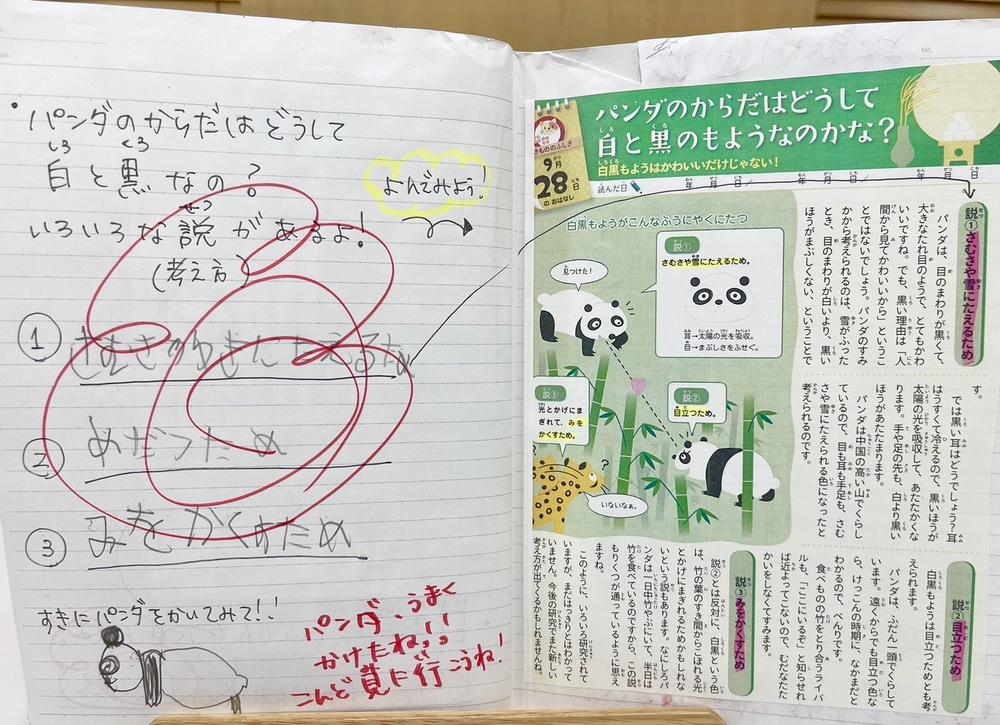 ・パンダのからだはどうして
白と黒なの？
しろ くろ
いろいろな説があるよ！
せつ
(考え方)
よんでみよう！
① さむさやゆきにたえるため
② めだつため
③ みをかくすため
すきにパンダをかいてみて！！
パンダ、うまく
かけたね!!
こんど見に行こうね！
No.
パンダのからだはどうして
白と黒のもようなのかな？
しろ くろ
白黒もようはかわいいだけじゃない！
いきもののふしぎ
9月
28日
のおはなし
読んだ日 年 月 日／ 年 月 日／ 年 月 日
白黒もようがこんなふうにやくにたつ
説①
さむさや雪にたえるため。
耳→太陽の光を吸収。
目→まぶしさをふせぐ。
見つけた！
説②
目立つため。
説③
光とかげにま
ぎれて、みを
かくすため。
？
いないなぁ。
説①さむさや雪にたえるため
パンダは、目のまわりが黒くて、
大きなたれ目のようで、とてもかわ
いいですね。でも、黒い理由は「人
間から見てかわいいから」というこ
とではないでしょう。パンダのすみ
かから考えられるのは、雪がふった
とき、目のまわりが白いより、黒い
ほうがまぶしくない、ということで
す。
では黒い耳はどうでしょう？耳
はうすくて冷えるので、黒いほうが
太陽の光を吸収して、あたたかくな
ります。手や足の先も、白より黒い
ほうがあたたまります。
パンダは中国の高い山でくらし
ているので、目も耳も手足も、さむ
さや雪にたえられる色になったと
考えられるのです。
説②目立つため
白黒もようは目立つためとも考
えられます。
パンダは、ふだん一頭でくらして
います。遠くからでも目立つ色な
ら、けっこんの時期に、なかまだと
わかるので、べんりです。
食べものの竹をとり合うライバ
ルも、「ここにいるぞ」と知らせれ
ば近よってこないので、むだなたた
かいをしなくてすみます。
説③みをかくすため
説②とは反対に、白黒という色
は、竹の葉のすき間からこぼれる光
とかげにまぎれるためかもしれな
いという説もあります。なにしろパ
ンダは一日中竹やぶにいて、半日は
竹を食べているのですから、この説
もりくつが通っているように思え
ますね。
このように、いろいろ研究されて
いますが、まだはっきりとはわかって
いません。今後の研究でまた新しい
考え方が出てくるかもしれませんね。